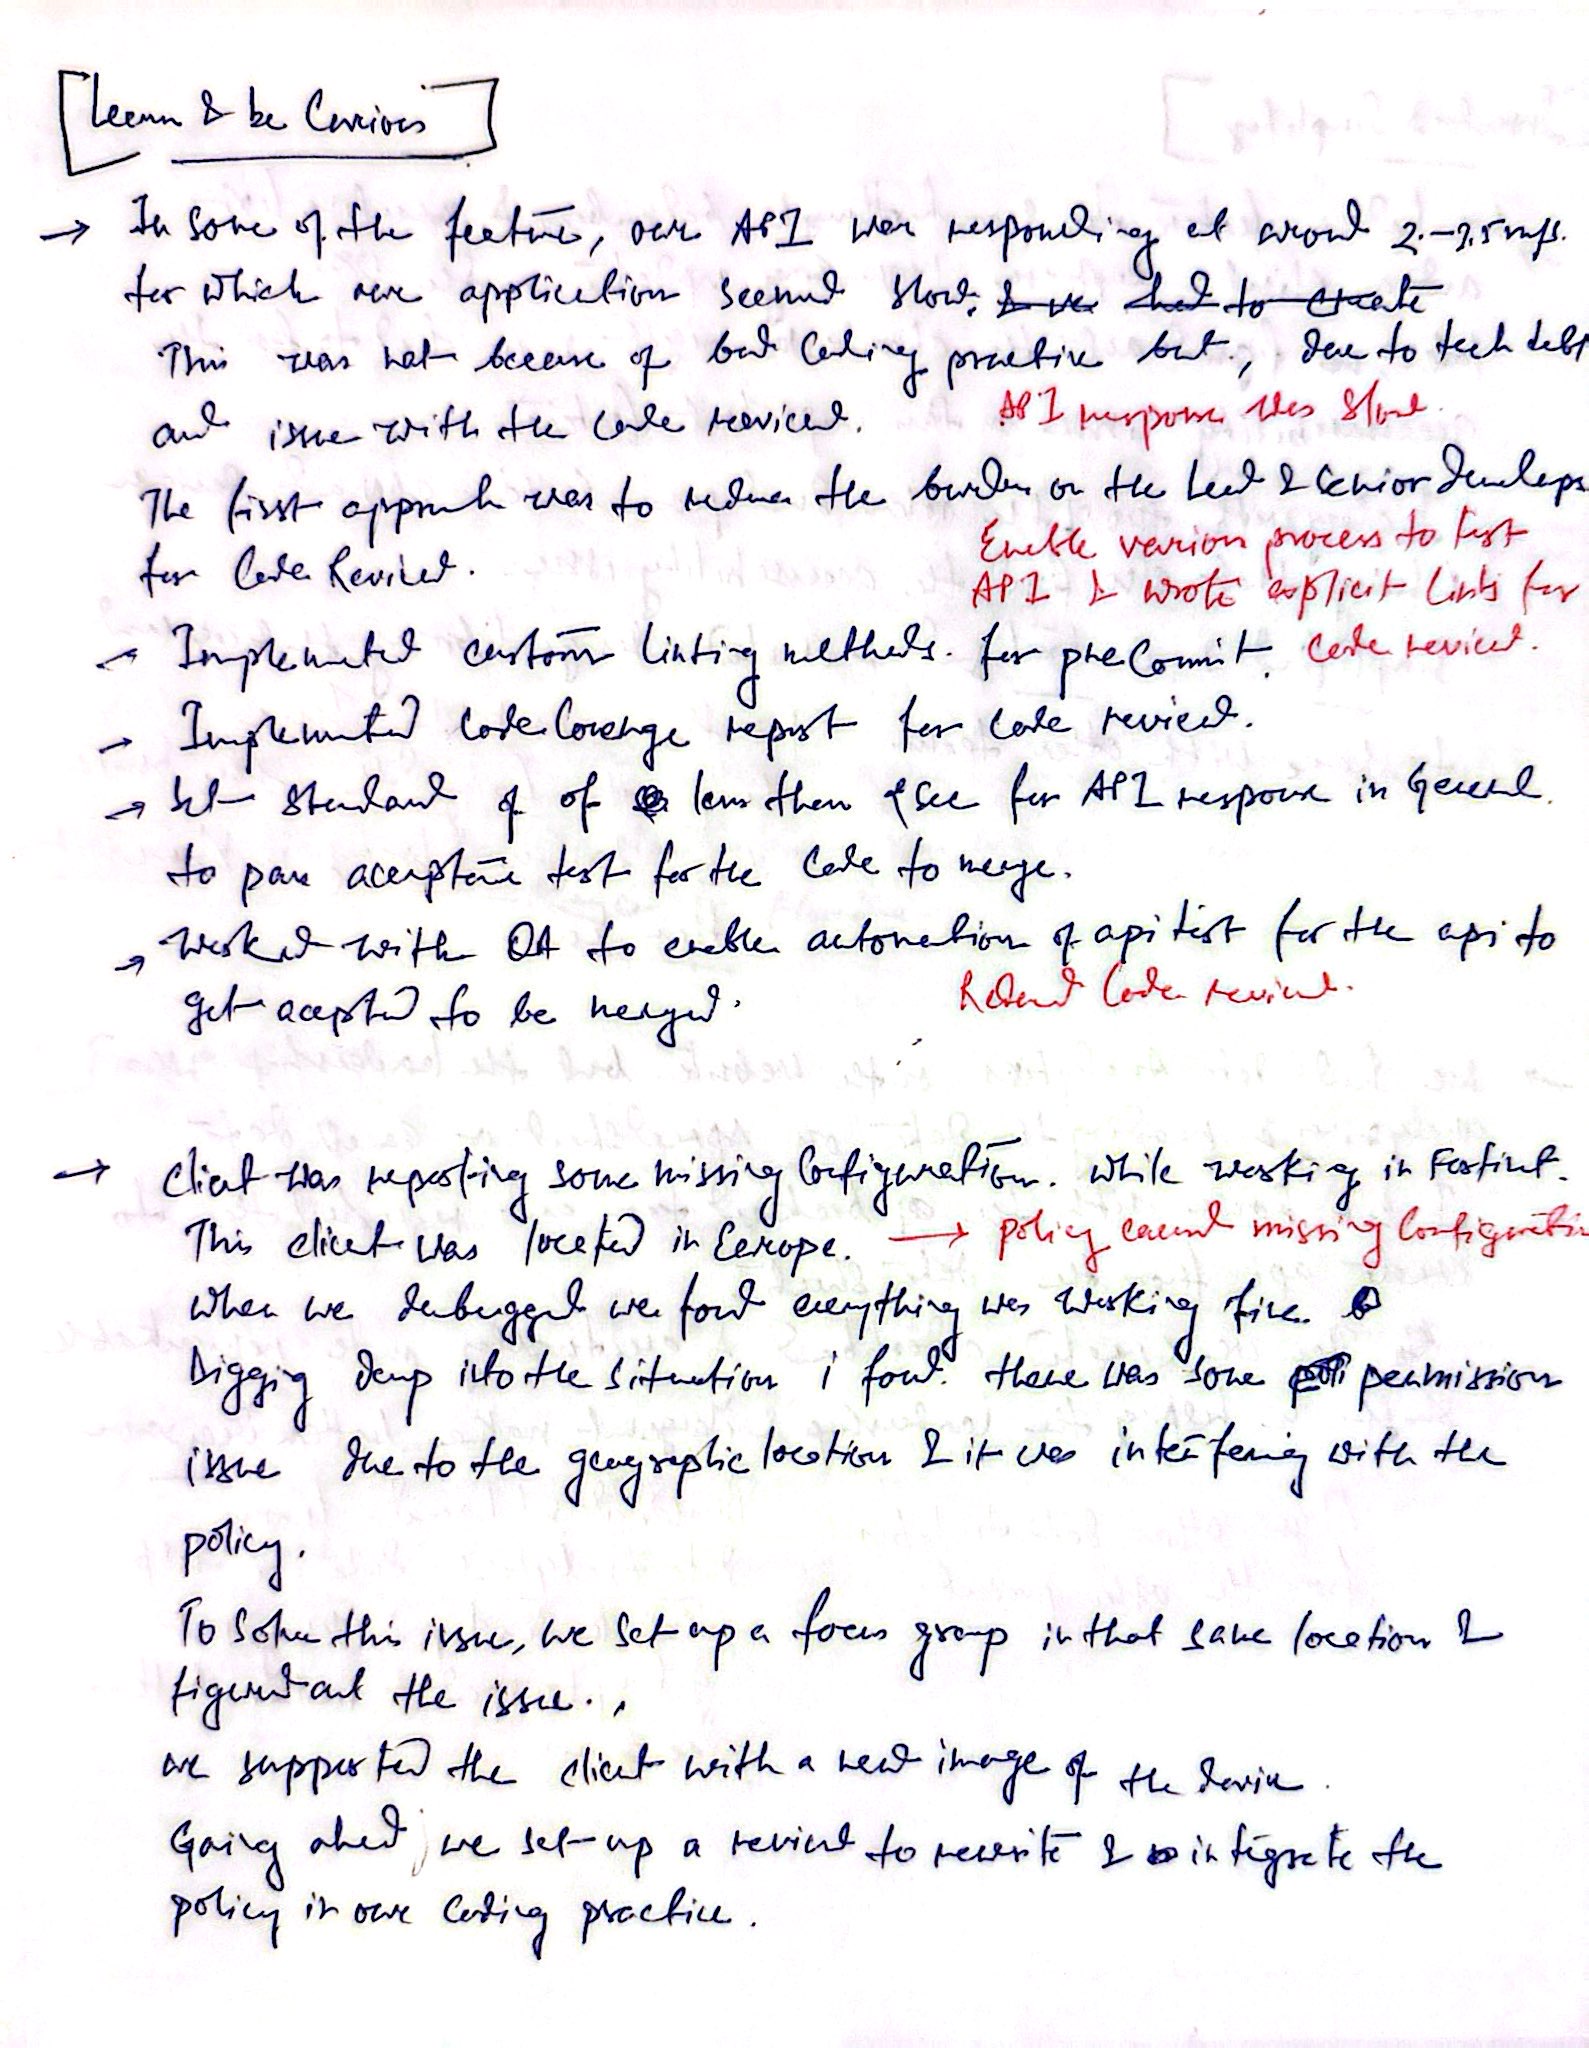 Learn & be Curious
→ In some of the feature, our API was responding at around 2.-2.5
for which our application seemed slow. & we had to create
This was not because of bad Coding practice but, due to tech debt
and issue with the code reviewed.
API response was slow.
The first approach was to reduce the burden on the Lead & Senior Developers
for Code Review.
Enable various process to test
API & wrote explicit Lints for
code review.
→ Implemented custom linting methods. for preCommit.
→ Implemented code Coverage report for code review.
→ Set standard of of less than sec for API response in General.
to pass acceptance test for the Code to merge.
→ Worked with QA to enable automation of api test for the api to
get accepted to be merged.
Code review.
→ Client was reporting some missing Configuration. while working in Fortinet.
This client was located in Europe. → policy caused missing Configuration
When we debugged we found everything was working fine.
Digging deep into the situation i found. there was some permission
issue due to the geographic location & it was interfering with the
policy.
To solve this issue, we set up a focus group in that same location &
figured out the issue.
we supported the client with a new image of the device.
Going ahead, we set-up a review to rewrite & integrate the
policy in our Coding practice.